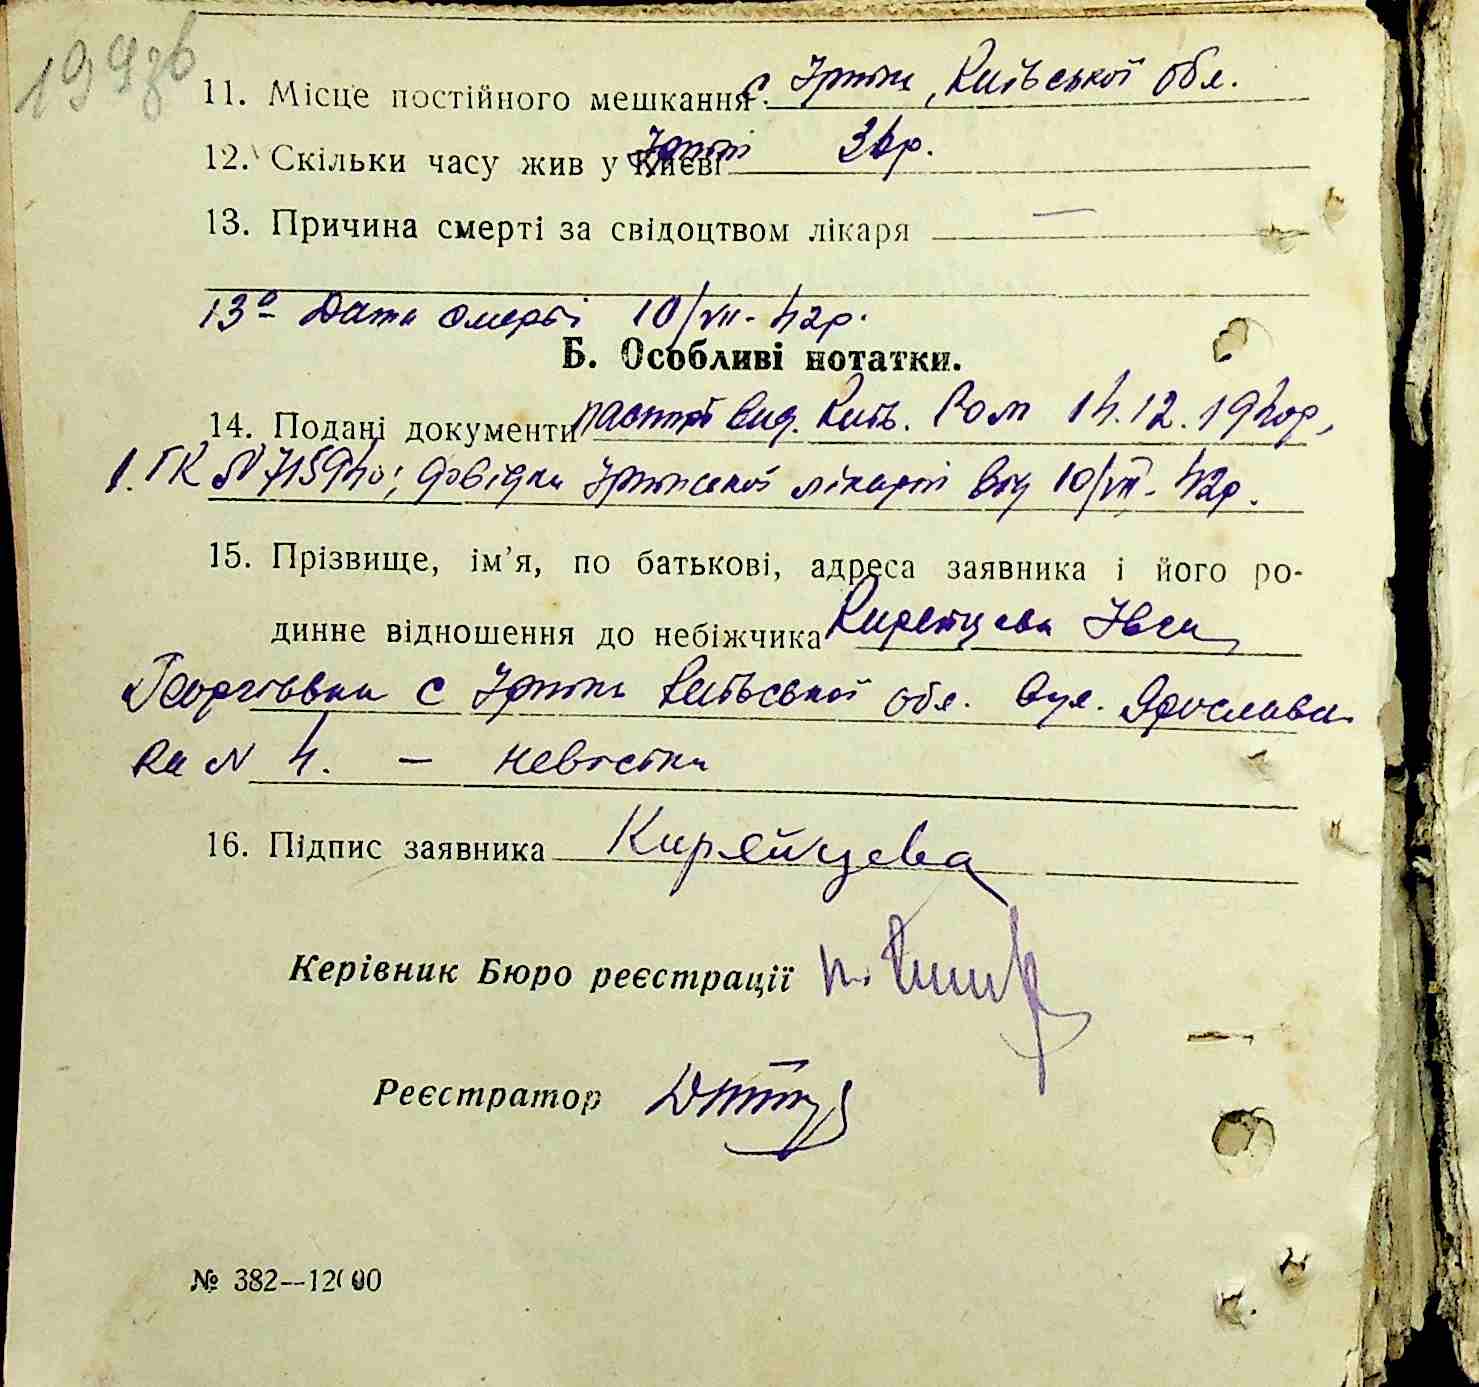 199зв
11. Місце постійного мешкання с. Ірпінь, Київської обл.
12. Скільки часу жив у Києві Ірпіні 36 р.
13. Причина смерті за свідоцтвом лікаря —
13а Дата смерті 10/VII-42р.
Б. Особливі нотатки.
14. Подані документи паспорт вид. Київ. 14.12.1940р,
І.ГК № 715940; довідка Ірпінської лікарні від 10/VII-42р.
15. Прізвище, ім'я, по батькові, адреса заявника і його ро-
динне відношення до небіжчика Кирейцева
Георгіївна с Ірпінь Київської обл. вул. Ярослав
ка № 4. — невістка
16. Підпис заявника Кирейцева
Керівник Бюро реєстрації
Реєстратор
№ 382—12000